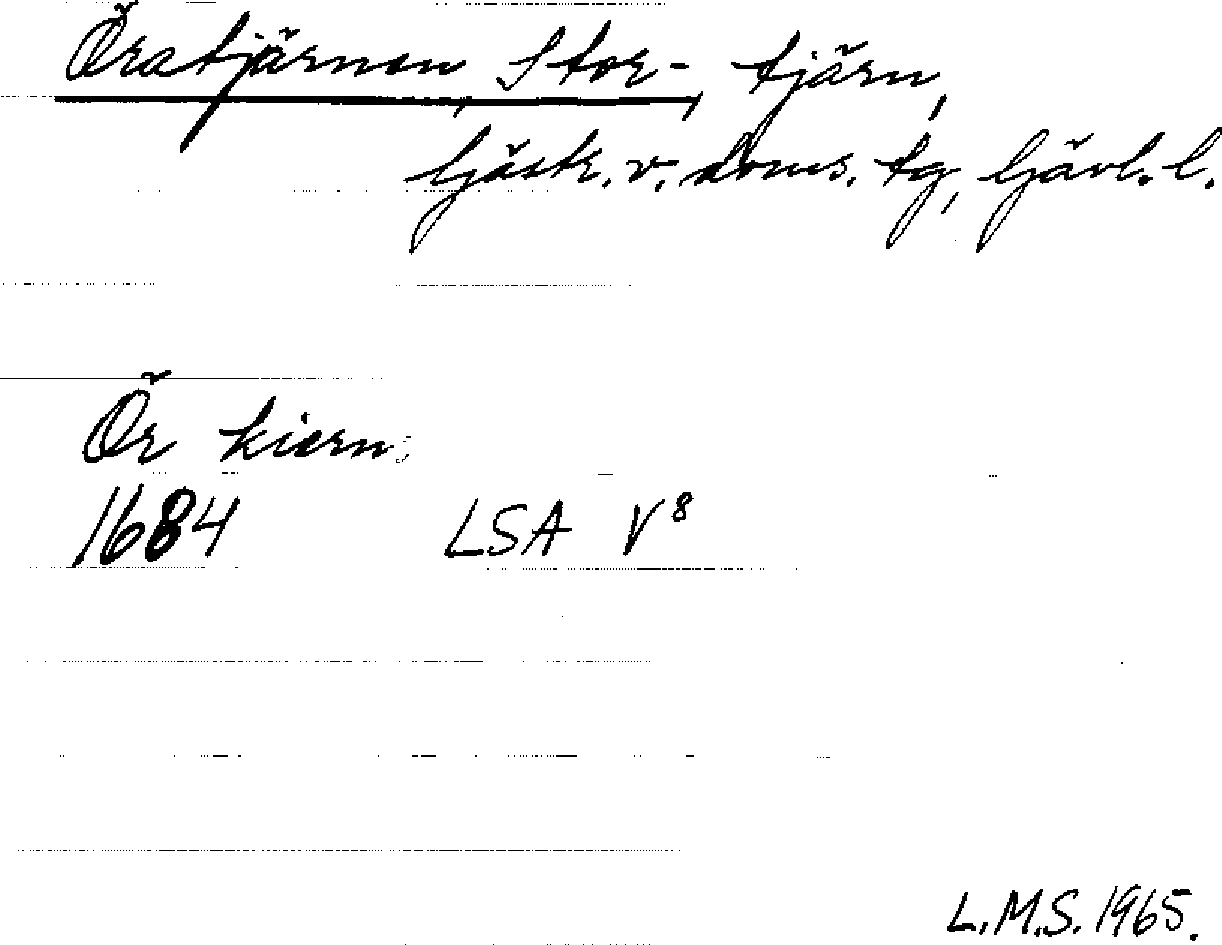 Öratjärnen, Stor-, tjärn,
Gästr. v. doms. tg, Gävl. l.
Ör kiern
1684 LSA V⁸
L.M.S. 1965.